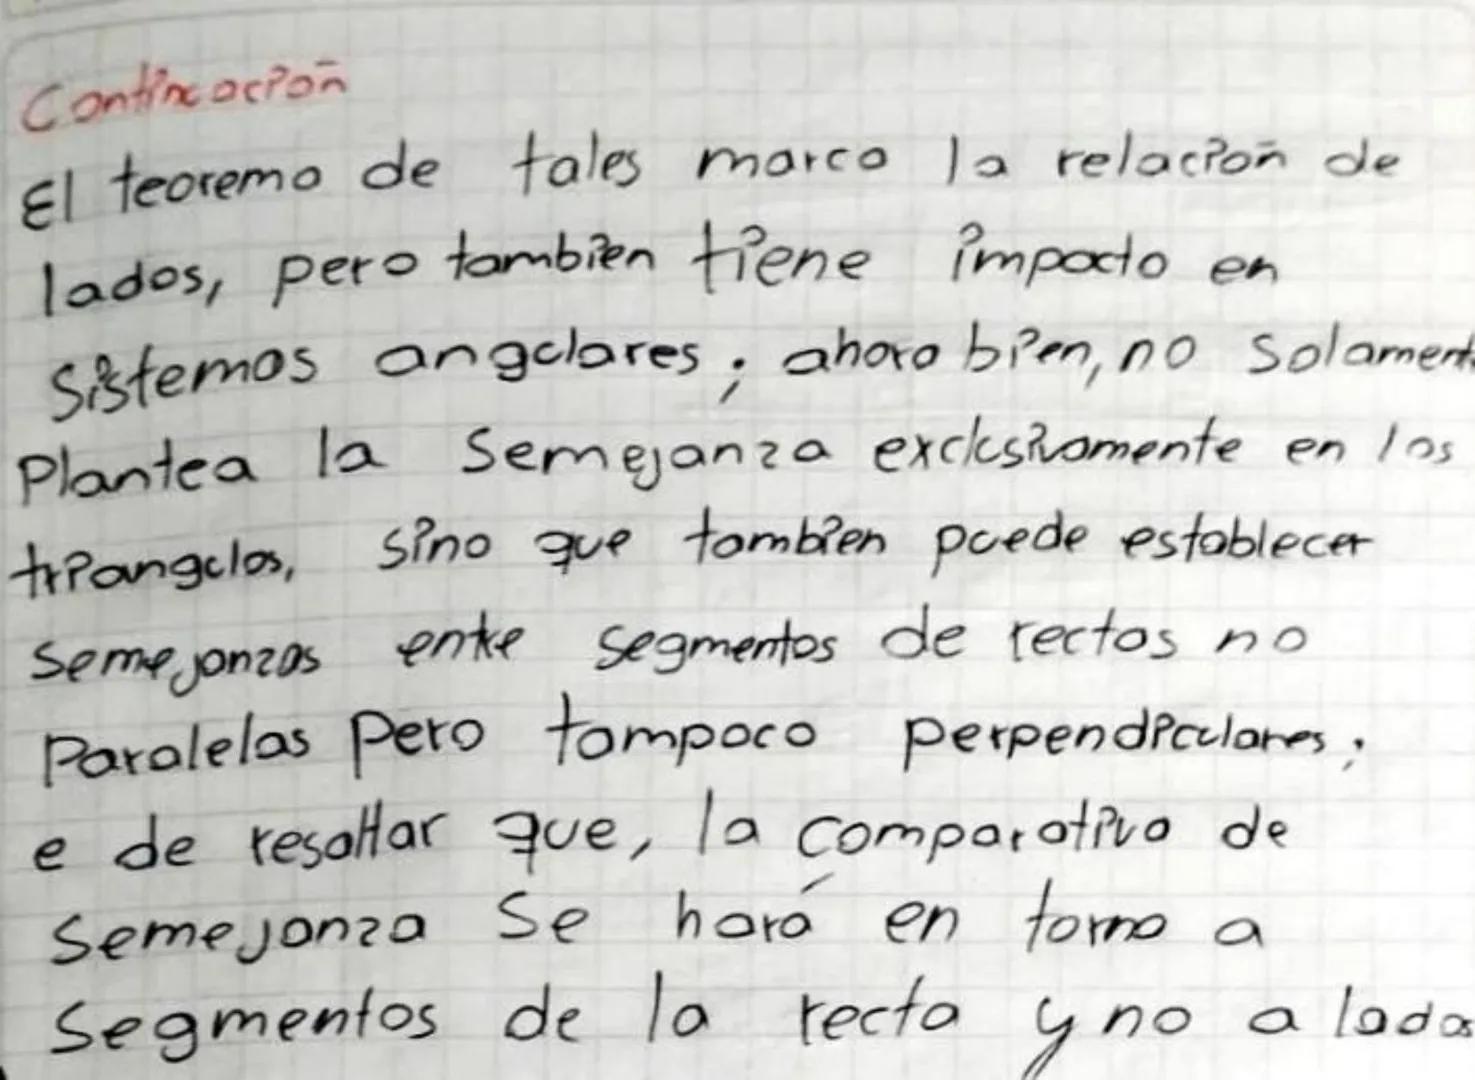 Continuación
El teorema de tales marca la relación de
lados, pero tambien tiene impacto en
sistemas angulares; ahora bien, no Solament
Plantea la Semejanza exclusivamente en los
triangulos, sino que tambien puede establecer
semejanzas entre segmentos de rectas no
Paralelas pero tampoco perpendiculares;
e de resaltar que, la comparativa de
Semejanza se hará en torno a
Segmentos de la recta y no a lados